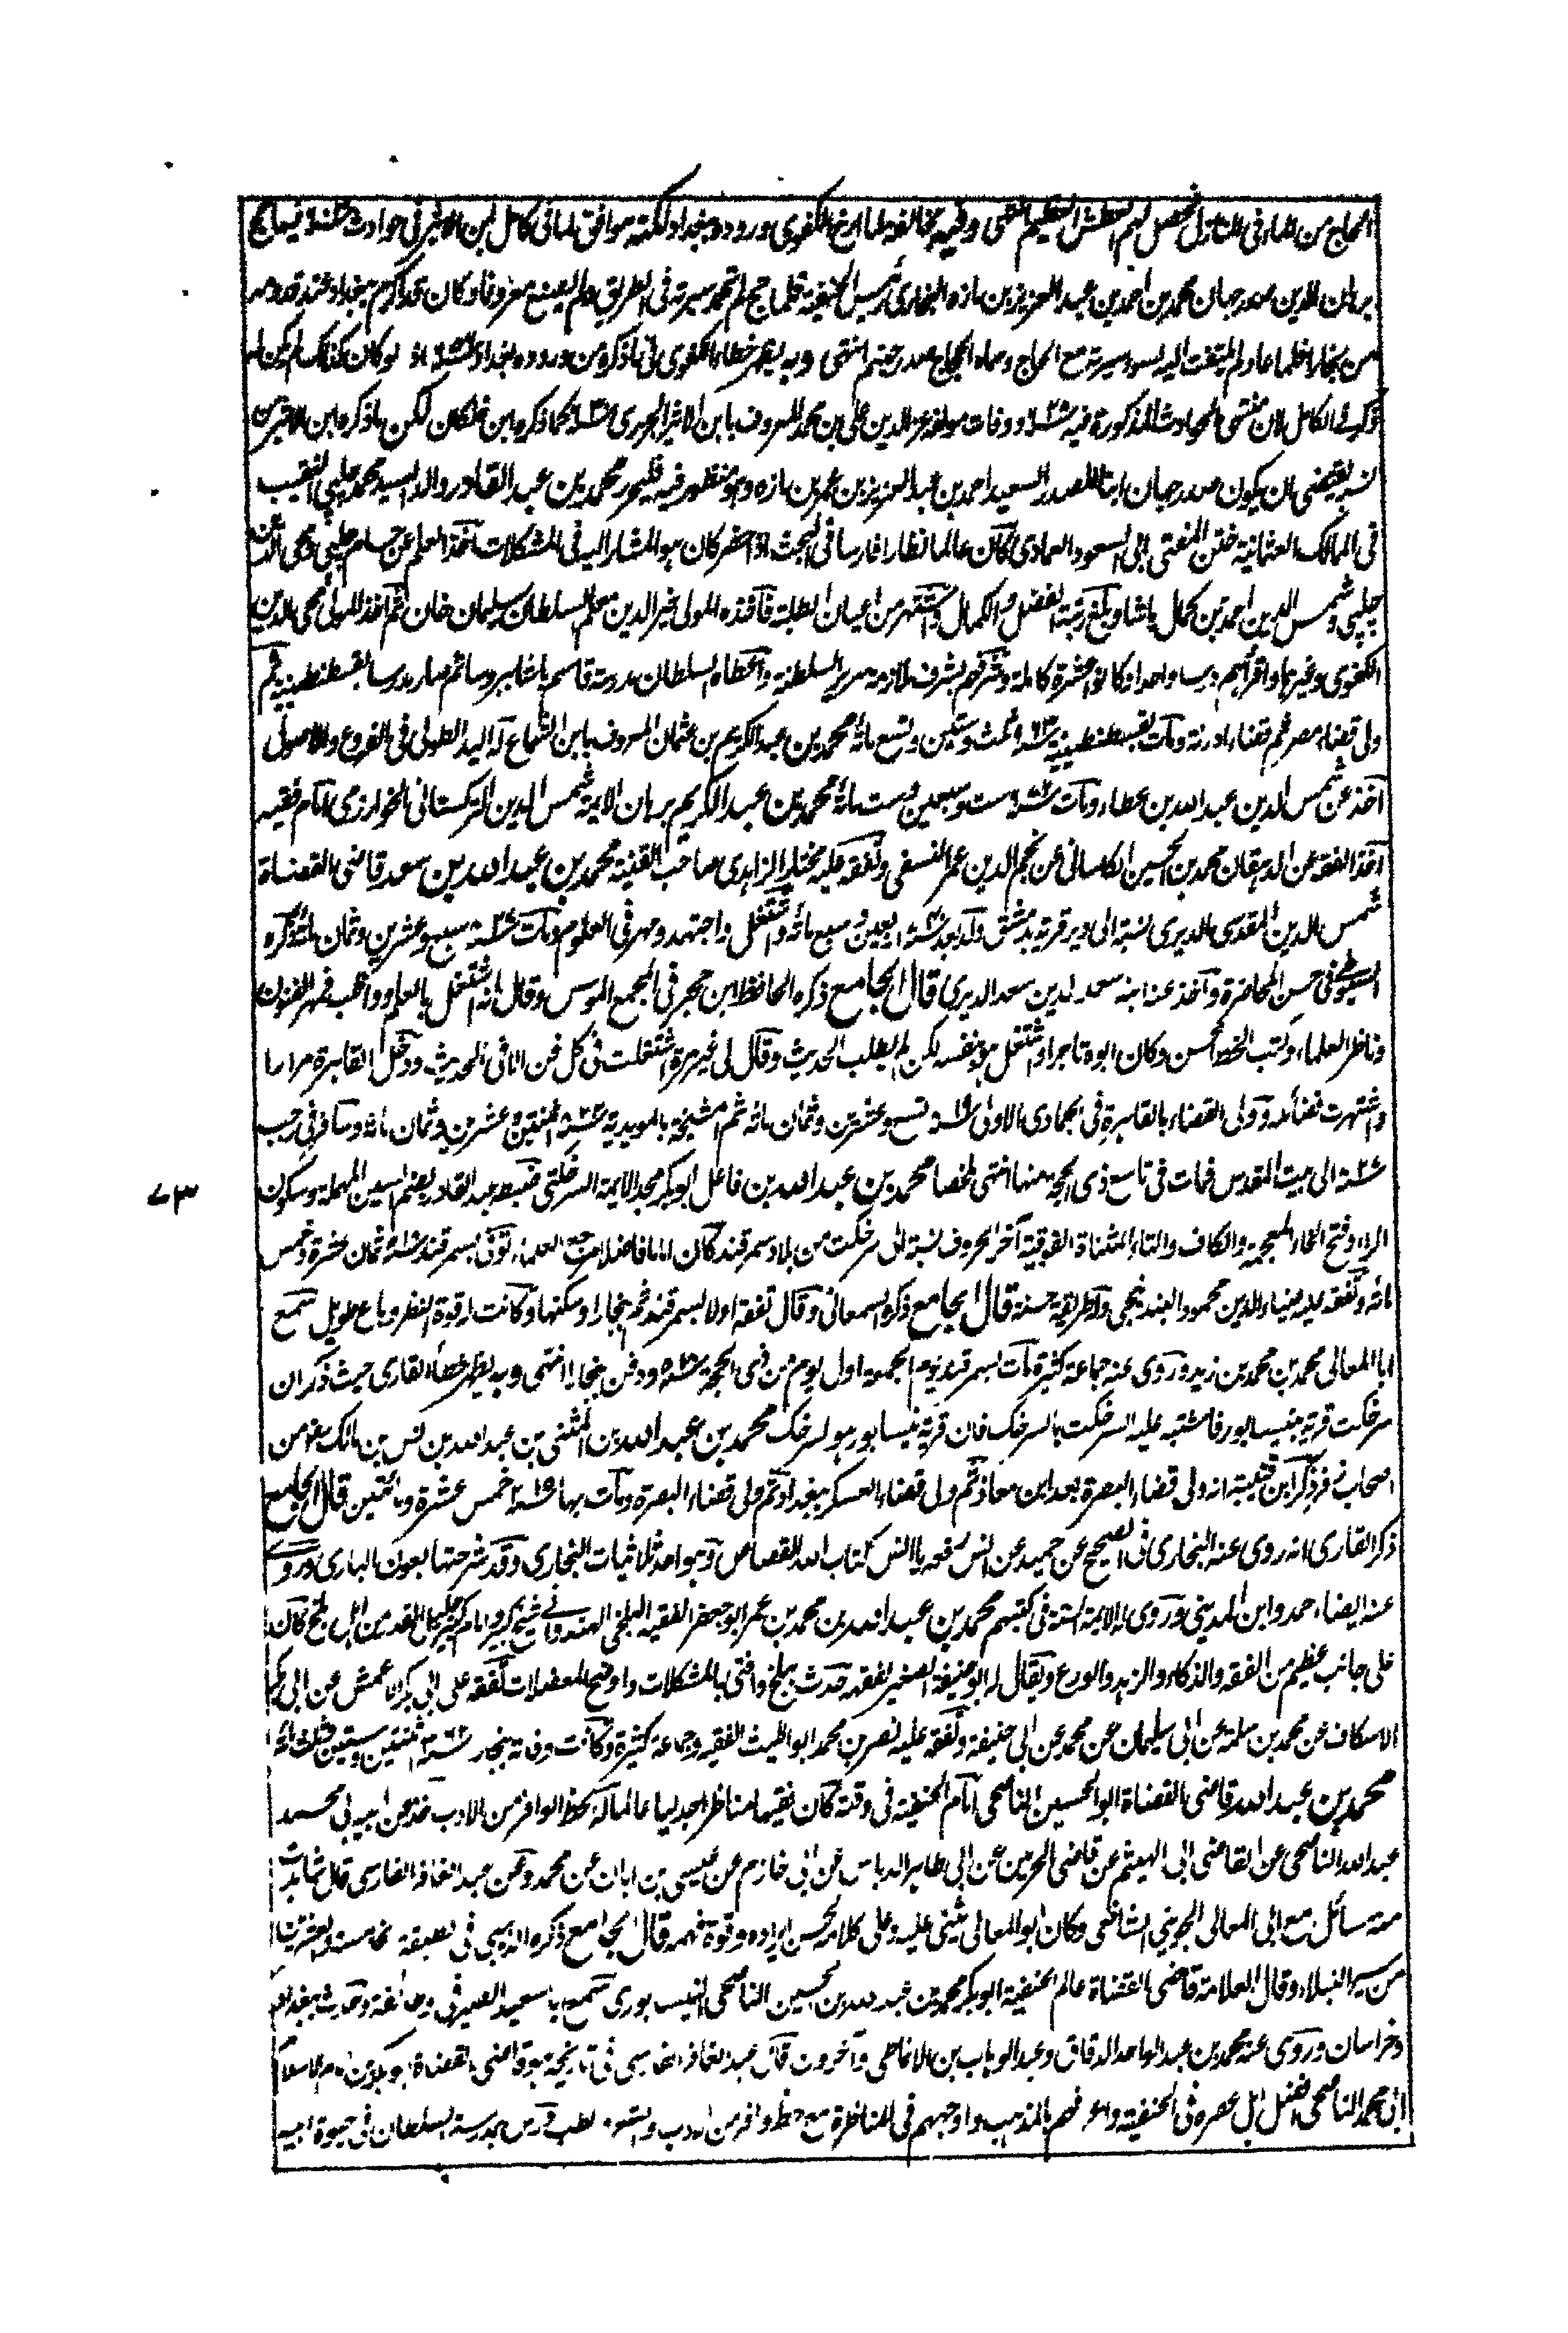 الحجاج من الماء في المنازل فحصل لهم العطش العظيم انتهى وفيه مخالفة لما ارخ الكفوي وروده ببغداد لكنه موافق لما في كامل ابن الاثير في حوادث سنة فيها حج
برهان الدين صدر جهان محمد بن احمد بن عبد العزيز بن مازه البخاري رئيس الحنفية فلما حج لم تحمد سيرته في الطريق ولم يصنع معروفا وكان قد اكرم ببغداد عند قدومه
من بخارا فلما عاد لم يلتفت اليه لسوء سيرته مع الحاج وسماه الحجاج صدر جهنم انتهى وبه يظهر خطأ الكفوي في ما ذكره من وروده بغداد اذ لو كان كذلك لم يكن له
ذكر في الكامل لان منتهى الحوادث المذكورة فيه سنة ٦٢٨ ووفات مولفه عز الدين علي بن محمد المعروف بابن الاثير الجزري سنة ٦٣٠ كما ذكره ابن خلكان لكن ما ذكره ابن الاثير من
نسبه يقتضي ان يكون صدر جهان ابنا للصدر السعيد احمد بن عبد العزيز بن عمر بن مازه وهو منظور فيه فليحرر محمد بن عبد القادر والد السيد محمد چلپي النقيب
في الممالك العثمانية ختن المفتي ابي السعود العمادي كان عالما نظارا فارسا في البحث اذا حضر كان هو المشار اليه في المشكلات اخذ العلم عن حسام چلپي ومحي الدين
چلپي وشمس الدين احمد بن كمال باشا وبلغ رتبة الفضل والكمال واشتهر من اعيان الطلبة فاخذه المولى خير الدين معلم السلطان سليمان خان ثم اخذ المولى محي الدين
الكفوي وغيرهما واقرأهم درسا واحدا وكانوا عشرة كاملة وشرفهم بشرف ملازمة سرير السلطنة واعطاه السلطان مدرسة قاسم باشا ببروسا ثم صار مدرسا بقسطنطينية ثم
ولي قضاء مصر ثم قضاء ادرنة ومات بقسطنطينية سنة ٩٦٣ ثلث وستين وتسع مائة محمد بن عبد الكريم بن عثمان المعروف بابن الشماع له اليد الطولى في الفروع والاصول
اخذ عن شمس الدين عبد الله بن عطاء ومات سنة ٦٧٦ ست وسبعين وست مائة محمد بن عبد الكريم برهان الايمة شمس الدين التركستاني الخوارزمي امام فقيه
اخذ الفقه عن الدهقان محمد بن الحسين الكاساني عن نجم الدين عمر النسفي وتفقه عليه مختار الزاهدي صاحب القنية محمد بن عبد الله بن سعد قاضي القضاة
شمس الدين المقدسي الديري نسبة الى دير قرية بدمشق ولد بعد سنة اربعين وسبع مائة واشتغل واجتهد ومهر في العلوم ومات سنة ٨٢٧ سبع وعشرين وثمان مائة ذكره
السيوطي في حسن المحاضرة واخذ عنه ابنه سعد الدين سعد الديري قال الجامع ذكره الحافظ ابن حجر في المجمع المؤسس وقال انه اشتغل بالعلم وواظب فمهر الفنون
وناظر العلماء وكتب الخط الحسن وكان ابوه تاجرا واشتغل هو بنفسه لكن لم يطلب الحديث وقال لي غير مرة اشتغلت في كل فن الا في الحديث ودخل القاهرة مرارا
واشتهرت فضائله وولي القضاء بالقاهرة في جمادى الاولى سنة ٨١٩ تسع وعشرة وثمان مائة ثم المشيخة بالمويدية سنة ٨٢٢ اثنتين وعشرين وثمان مائة وسافر في رجب
سنة الى بيت المقدس فمات في تاسع ذي الحجة منها انتهى ملخصا محمد بن عبد الله بن فاعل ابو بكر مجد الايمة السرخكتي ضبطه عبد القادر بضم السين المهملة وسكون
الراء وفتح الخاء المعجمة والكاف والتاء المثناة الفوقية آخر الحروف نسبة الى سرخكت من بلاد سمرقند كان اماما فاضلا من العلماء توفي بسمرقند سنة ٥١٨ ثمان عشرة وخمس
مائة وتفقه عليه ضياء الدين محمود البندنيجي وله طريقة حسنة قال الجامع ذكره السمعاني وقال تفقه اولا بسمرقند ثم ببخارا وسكنها وكانت له قوة النظر وباع طويل سمع
ابا المعالي محمد بن محمد بن زيد وروى عنه جماعة كثيرة مات بسمرقند يوم الجمعة اول يوم من ذي الحجة سنة ٥١٨ ودفن ببخارا انتهى وبه يظهر خطأ القاري حيث ذكر ان
سرخكت قرية بنيسابور فاشتبه عليه السرخكت بالسرخك فان قرية نيسابور هو السرخك محمد بن عبد الله بن المثنى بن عبد الله بن انس بن مالك هو من
اصحاب زفر ذكر ابن قتيبة انه ولي قضاء البصرة بعد ابن معاذ ثم ولي قضاء العسكر ببغداد ثم ولي قضاء البصرة ومات بها سنة ٢١٥ خمس عشرة ومائتين قال الجامع
ذكر القاري انه روى عنه البخاري في الصحيح عن حميد عن انس رفعه يا انس كتاب الله القصاص وهو احد ثلاثيات البخاري وقد شرحتها بعون الباري وروى
عنه ايضا احمد وابن المديني وروى له الايمة الستة في كتبهم محمد بن عبد الله بن محمد بن عمر ابو جعفر الفقيه البلخي الهندواني شيخ كبير وامام جليل القدر من اهل بلخ كان
على جانب عظيم من الفقه والذكاء والزهد والورع ويقال له ابو حنيفة الصغير لفقهه حدث ببلخ وافتى بالمشكلات واوضح المعضلات تفقه على ابي بكر الاعمش عن ابي بكر
الاسكاف عن محمد بن سلمة عن ابي سليمان عن محمد عن ابي حنيفة وتفقه عليه نصر بن محمد ابو الليث الفقيه وجماعة كثيرة وكانت وفاته ببخارا سنة ٣٦٢ اثنتين وستين وثلث مائة
محمد بن عبد الله قاضي القضاة ابو الحسين الناصحي امام الحنفية في وقته كان فقيها مناظرا جدليا عالما له الحظ الوافر من الادب اخذ عن ابيه ابي محمد
عبد الله الناصحي عن القاضي ابي الهيثم عن قاضي الحرمين عن ابي طاهر الدباس عن ابي خازم عن عيسى بن ابان عن محمد وعن عبد الغافر الفارسي قال شاهدت
منه مسائل مع ابي المعالي الجويني الشافعي وكان ابو المعالي يثني عليه وعلى كلامه لحسن ايراده وقوة فهمه قال الجامع ذكره الذهبي في الطبقة الخامسة والعشرين
من سير النبلاء وقال العلامة قاضي القضاة عالم الحنفية ابو بكر محمد بن عبد الله بن الحسين الناصحي النيسابوري سمع ابا سعيد الصيرفي وطائفة وحدث ببغداد
وخراسان وروى عنه محمد بن عبد الواحد الدقاق وعبد الوهاب بن الانماطي وآخرون قال عبد الغافر الفارسي في تاريخه هو قاضي القضاة ابو بكر بن امام الاسلام
ابي محمد الناصحي افضل اهل عصره في الحنفية واعرفهم بالمذهب واوجههم في المناظرة مع حظ وافر من الادب والشعر والطب درس بمدرسة السلطان في حيوة ابيه
٧٣